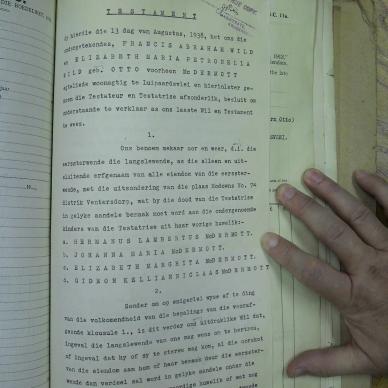 T E S T A M E N T
Op hierdie die 13 dag van Augustus, 1938, het ons die
ondergetekendes, FRANCIS ABRAHAM WILD
en ELIZABETH MARIA PETRONELLA
WILD geb. OTTO voorheen McDERMOTT
egteliede woonagtig te Luipaardsvlei en hierinlater ge-
noem die Testateur en Testatrise afsonderlik, besluit om
onderstaande te verklaar as ons laaste Wil en Testament
te wees.
1.
Ons benoem mekaar oor en weer, d.i. die
eerssterwende die langslewende, as die alleen en uit-
sluitende erfgenaam van alle eiendom van die eersster-
wende, met die uitsondering van die plaas No. 74
distrik Ventersdorp, wat by die dood van die Testatrise
in gelyke aandele bemaak moet word aan die ondergenoemde
kinders van die Testatrise uit haar vorige huwelik:-
a. HERMANUS LAMBERTUS McDERMOTT.
b. JOHANNA MARIA McDERMOTT.
c. ELIZABETH MARGRITA McDERMOTT.
d. GIDEON McDERMOTT
2.
Sonder om op enigerlei wyse af te ding
van die volkomendheid van die bepalings van die vooraf-
gaande klousule 1., is dit verder ons uitdruklike Wil dat,
ingeval die langslewende van ons mag wens om te hertrou,
ingeval dat hy of sy te sterwe mag kom, al die oorskot
van die eiendom aan hom of haar bemaak deur die eersster-
wende dan verdeel sal word in gelyke aandele onder die
huwelik of met nog